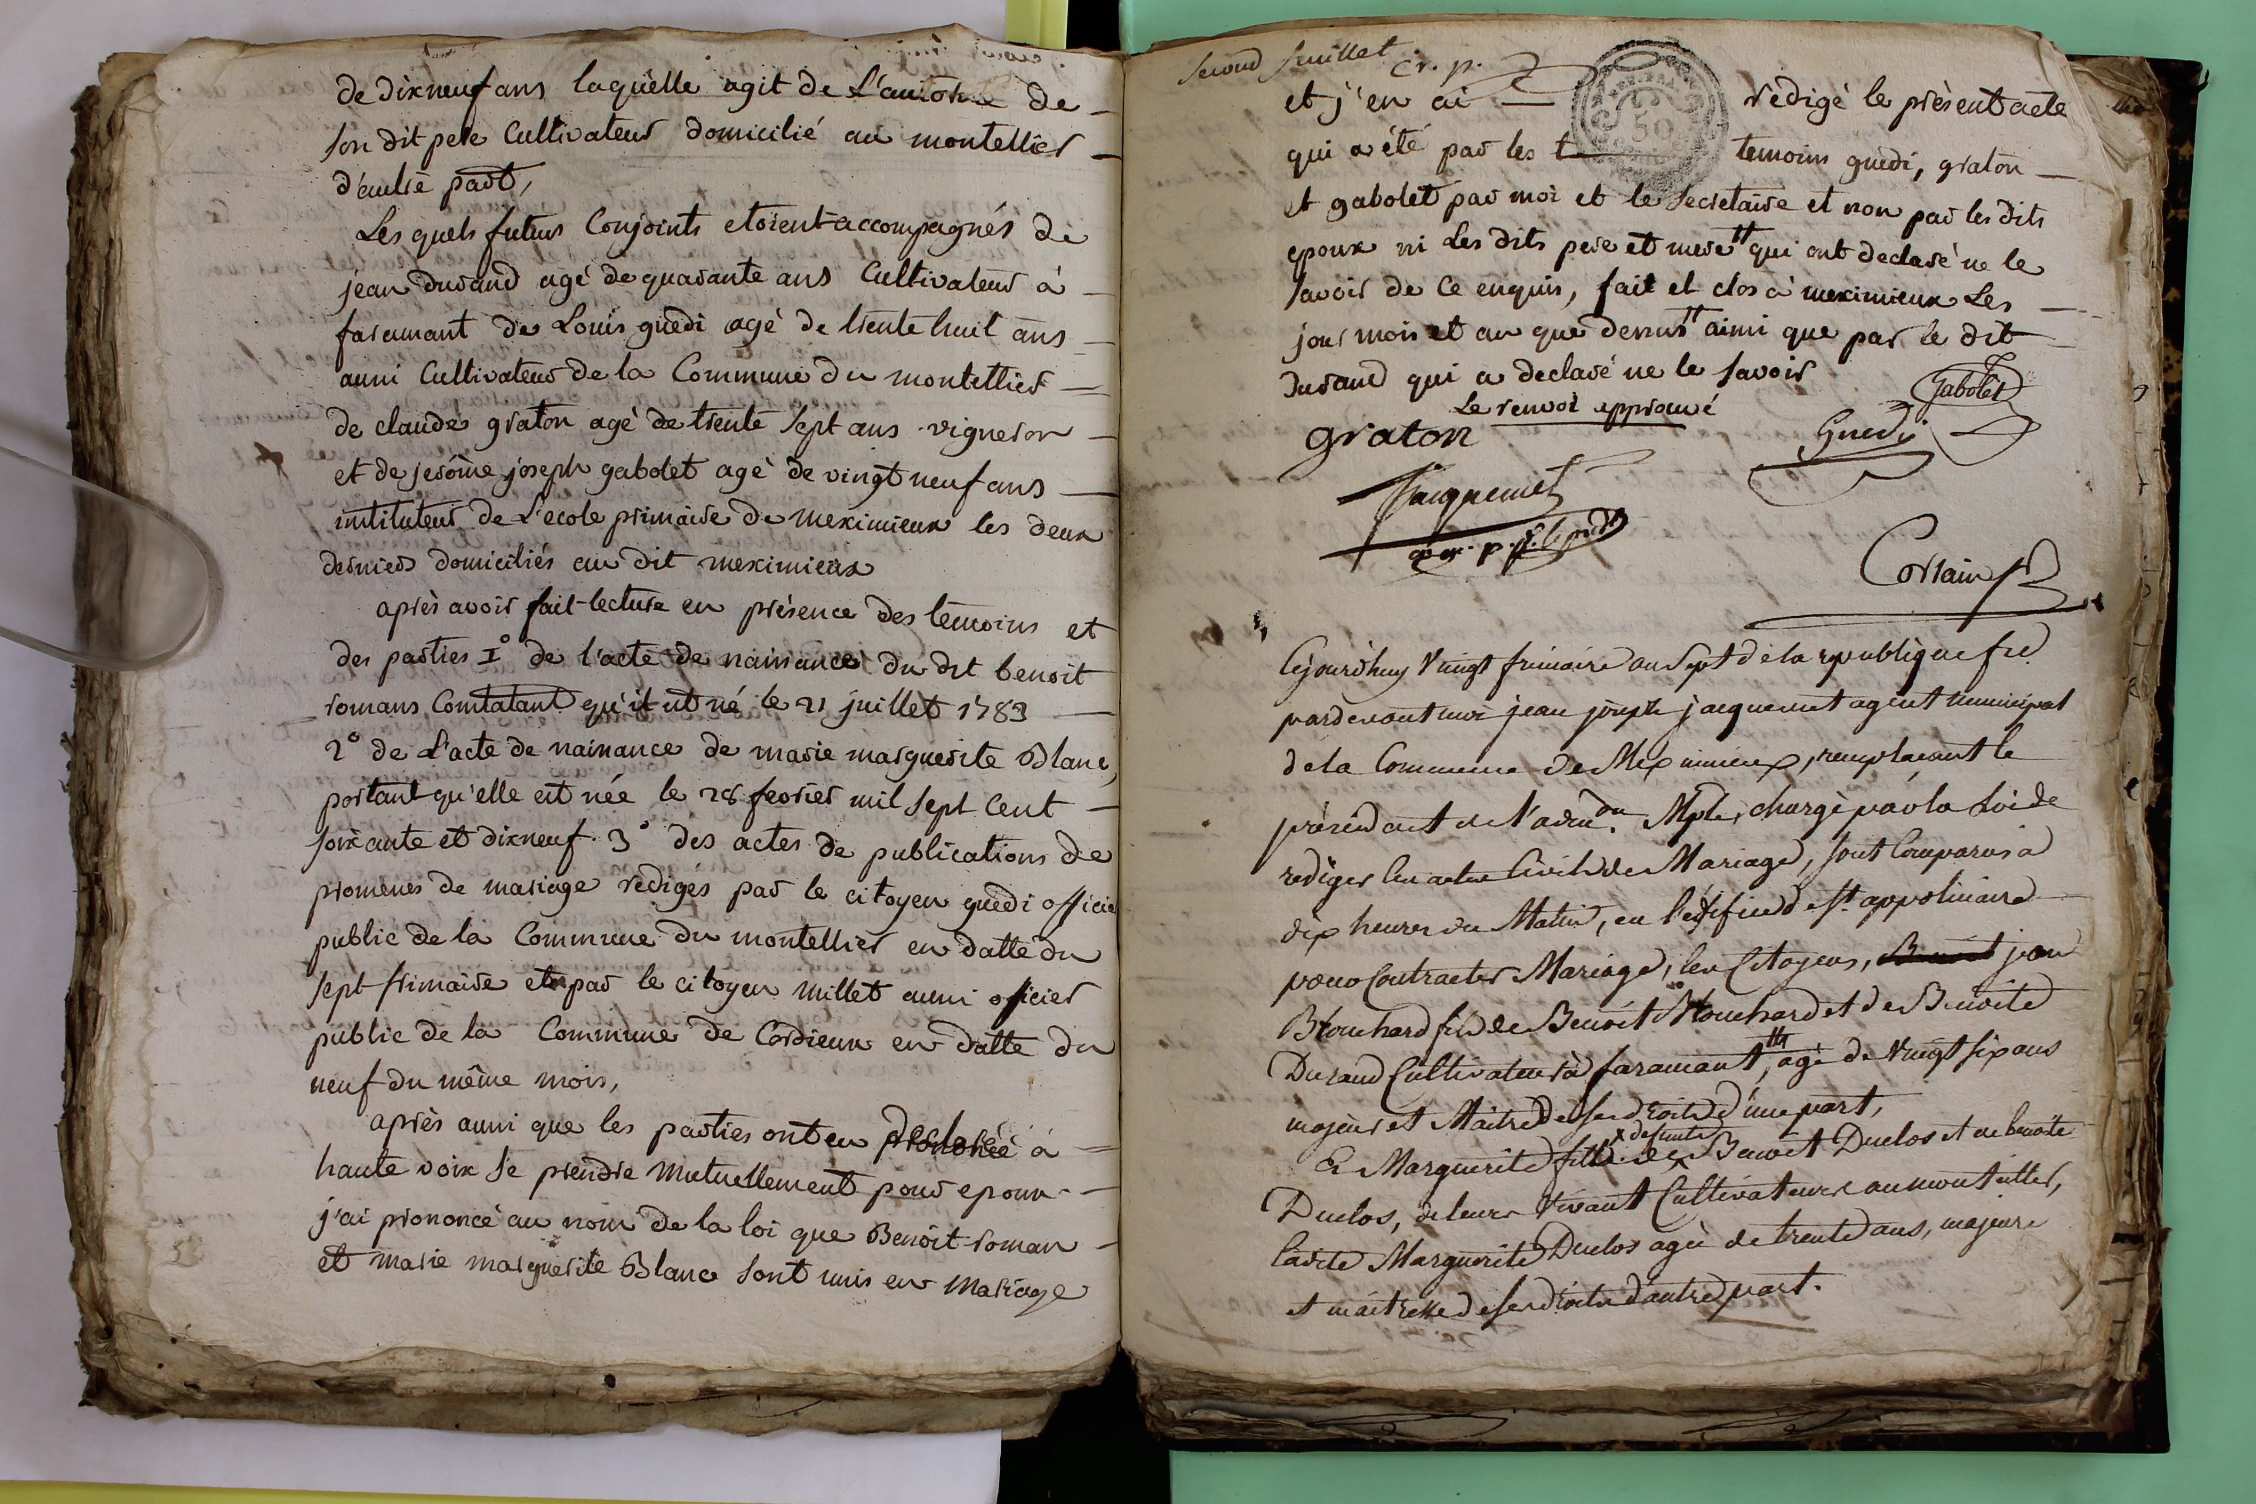 de dixneuf ans laquelle agit de L'autorité de
son dit pere Cultivateur domicilié au montellier
d'autre part,
Les quels futurs Conjoints etoient accompagnés de
jean durand agé de quarante ans Cultivateur à
faramant de Louis guedi agé de trente huit ans
aussi Cultivateur de la Commune du montellier
de claude graton agé de trente sept ans vigneron
et de jerôme joseph gabolet agé de vingt neuf ans
instituteur de L'ecole primaire de meximieux les deux
derniers domiciliés au dit meximieux
après avoir fait lecture en présence des temoins et
des parties 1° de l'acte de naissance du dit benoit
romans Constatant qu'il est né le 21 juillet 1783
2° de L'acte de naissance de marie marguerite Blanc,
portant qu'elle est née le 28 fevrier mil sept cent
soixante et dixneuf 3° des actes de publications de
promesses de mariage rediges par le citoyen guedi officier
public de la Commune du montellier en datte du
sept frimaire et par le citoyen millet aussi officier
public de la Commune de Cordieux en datte du
neuf du même mois,
après aussi que les parties ont eu declaré à
haute voix se prendre mutuellement pour epoux
j'ai prononcé au nom de la loi que Benoit roman
et marie marguerite Blanc sont unis en mariage
second feuillet cr. p.
et j'en ai rédigé le présent acte
qui a été par les t temoins guedi, graton
et gabolet par moi et le secretaire et non par les dits
epoux ni Les dits pere et mere qui ont declaré ne le
savoir de ce enquis, fait et clos à meximieux Les
jour mois et an que dessus aussi que par le dit
durand qui a declaré ne le savoir
Le renvoi approuvé
Gabolet
graton
Guedi
Jacquemet
Corsain
Cejourdhuy vingt frimaire an sept de la republique fse
pardevant moi jean joseph jacquemet agent municipal
de la Commune de Meximieux, remplacant le
président de l'admon Mple, chargé par la Loi de
rediger les actes Civils de Mariage, sont Comparus à
dix heures du Matin, en l'edifice de St appolinaire
pour Contracter Mariage, les Citoyens, jean
Blouchard fils de Benoit Blouchard et de Benoite
Durand Cultivateurs à faramant, agé de vingt six ans
majeur et Maitre de ses droits d'une part,
Et Marguerite fille de defunts Benoit Duclos et de benoite
Duclos, de leurs vivant Cultivateurs au montellier,
ladite Marguerite Duclos agée de trente ans, majeure
et maitresse de ses droits d'autre part.